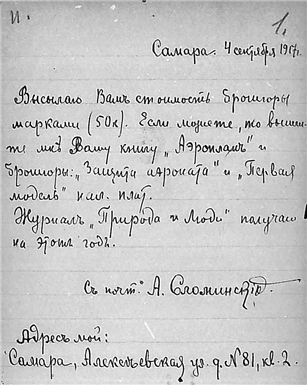 И.
1.
Самара. 4 сентября 1917г.
Высылаю Вамъ стоимость брошюры
марками (50к). Если можете, то вышли-
те мнѣ Вашу книгу „Аэропланъ" и
брошюры: „Защита аэроната" и „Первая
модель" нал. плат.
Журналъ „Природа и Люди" получаю
на этотъ годъ.
Съ почт. А. Сломинскій
Адресъ мой:
Самара, Алексѣевская ул. д. N 81, кв. 2.